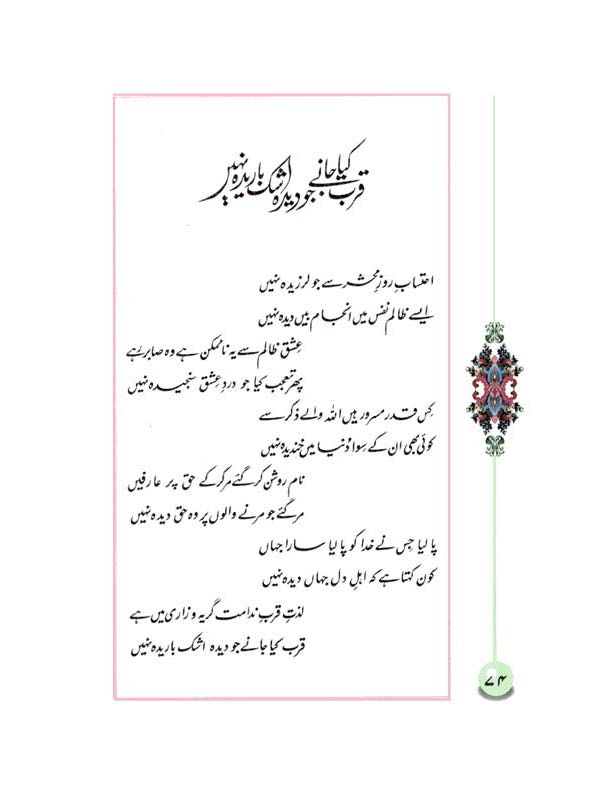 قرب کیا جانے جو دیدہ اشک باریدہ نہیں
احتسابِ روزِ محشر سے جو لرزیدہ نہیں
ایسے ظالم نفس میں انجام بیں دیدہ نہیں
عِشق ظالم سے یہ ناممکن ہے وہ صابر رہے
پھر تعجب کیا جو دردِ عِشق سنجیدہ نہیں
کِس قدر مسرور ہیں اللہ والے ذکر سے
کوئی بھی ان کے سِوا دُنیا میں خندیدہ نہیں
نام روشن کر گئے مرکر کے حق پر عارفیں
مرگئے جو مرنے والوں پر وہ حق دیدہ نہیں
پا لیا جِس نے خدا کو پا لیا سارا جہاں
کون کہتا ہے کہ اہلِ دل جہاں دیدہ نہیں
لذتِ قربِ ندامت گریہ و زاری میں ہے
قرب کیا جانے جو دیدہ اشک باریدہ نہیں
۷۴